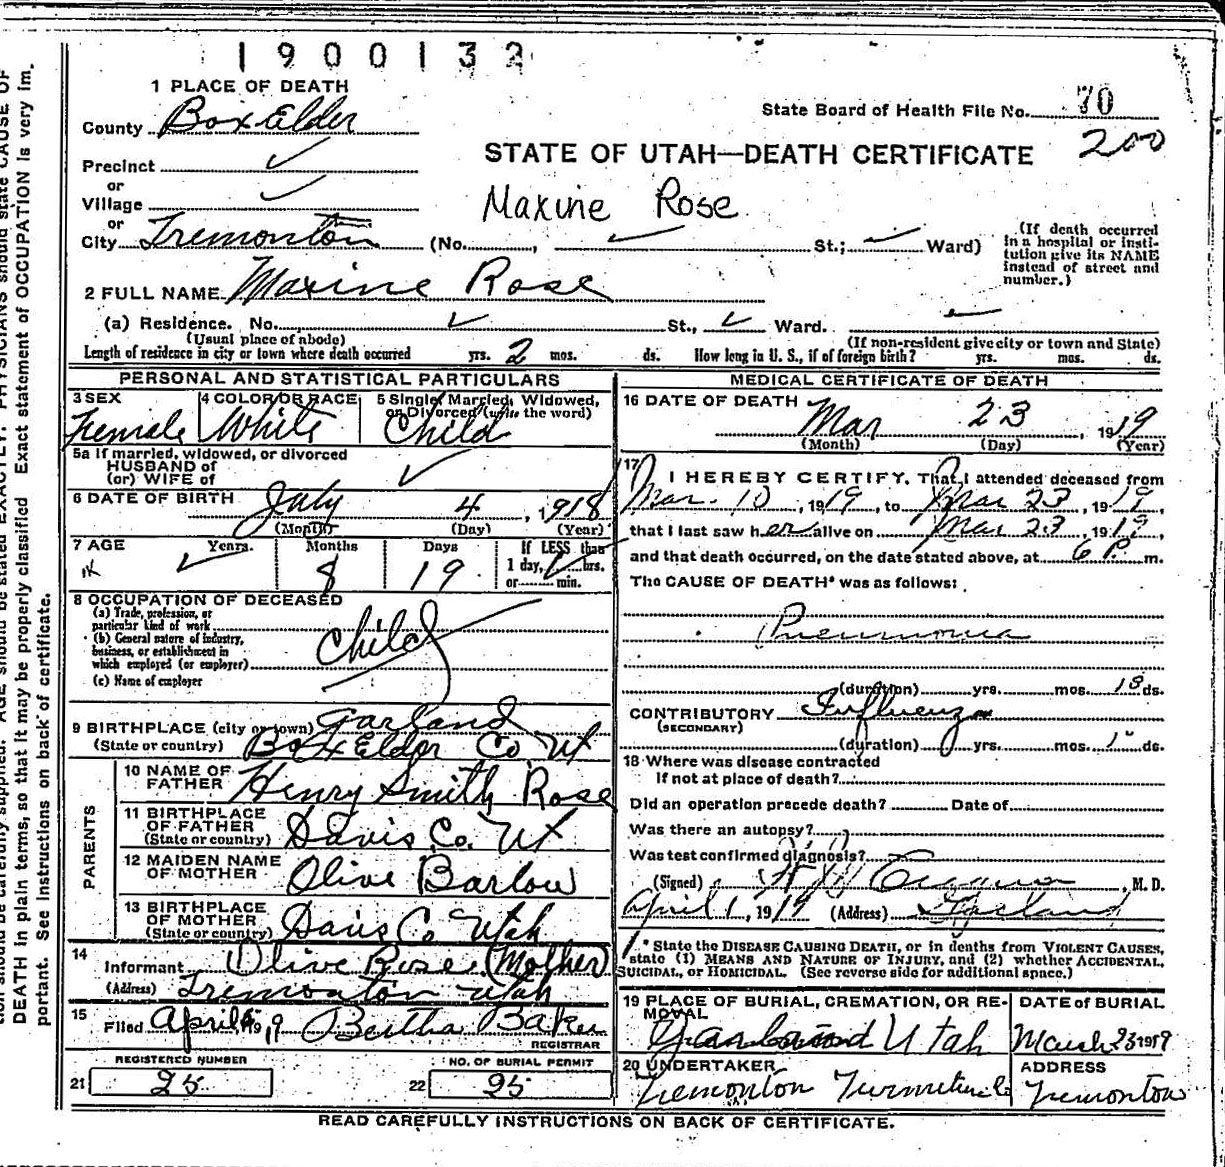 1900132
1 PLACE OF DEATH
State Board of Health File No. 70
County Box Elder
200
STATE OF UTAH—DEATH CERTIFICATE
Precinct
or
Village
Maxine Rose
or
City Tremonton (No. , St.; Ward)
(If death occurred in a hospital or insti-
tution give its NAME
instead of street and
number.)
2 FULL NAME Maxine Rose
(a) Residence. No. St., Ward.
(Usual place of abode) (If non-resident give city or town and State)
Length of residence in city or town where death occurred yrs. 2 mos. ds. How long in U. S., if of foreign birth? yrs. mos. ds.
PERSONAL AND STATISTICAL PARTICULARS
3 SEX 4 COLOR OR RACE 5 Single, Married, Widowed,
or Divorced (write the word)
Female White Child
5a If married, widowed, or divorced
HUSBAND of
(or) WIFE of
6 DATE OF BIRTH July 4, 1918
(Month) (Day) (Year)
7 AGE Years. Months Days If LESS than
1 day, hrs.
8 19 or min.
8 OCCUPATION OF DECEASED
(a) Trade, profession, or
particular kind of work
(b) General nature of industry,
business, or establishment in
which employed (or employer)
Child
(c) Name of employer
9 BIRTHPLACE (city or town) Garland
(State or country) Box Elder Co. Ut
PARENTS
10 NAME OF
FATHER Henry Smith Rose
11 BIRTHPLACE
OF FATHER
(State or country) Davis Co. Ut
12 MAIDEN NAME
OF MOTHER Olive Barlow
13 BIRTHPLACE
OF MOTHER
(State or country) Davis Co Utah
14
Informant Olive Rose (Mother)
(Address) Tremonton Utah
15
Filed April 19 Bertha Baker
REGISTRAR
REGISTERED NUMBER NO. OF BURIAL PERMIT
21 25 22 95
MEDICAL CERTIFICATE OF DEATH
16 DATE OF DEATH Mar 23, 1919
(Month) (Day) (Year)
17 I HEREBY CERTIFY, That I attended deceased from
Mar. 10, 1919, to Mar 23, 1919,
that I last saw her alive on Mar 23, 1919,
and that death occurred, on the date stated above, at 6 P. m.
The CAUSE OF DEATH* was as follows:
Pneumonia
(duration) yrs. mos. 13 ds.
CONTRIBUTORY Influenza
(SECONDARY)
(duration) yrs. mos. ds.
18 Where was disease contracted
if not at place of death?
Did an operation precede death? Date of
Was there an autopsy?
Was test confirmed diagnosis?
(Signed) , M. D.
April 1, 1919 (Address) Garland
* State the DISEASE CAUSING DEATH, or in deaths from VIOLENT CAUSES,
state (1) MEANS AND NATURE OF INJURY, and (2) whether ACCIDENTAL,
SUICIDAL, or HOMICIDAL. (See reverse side for additional space.)
19 PLACE OF BURIAL, CREMATION, OR RE- DATE of BURIAL
MOVAL
Garland Utah March 23 1919
20 UNDERTAKER ADDRESS
Tremonton Furniture Co Tremonton
READ CAREFULLY INSTRUCTIONS ON BACK OF CERTIFICATE.
DEATH in plain terms, so that it may be properly classified Exact statement of OCCUPATION is very im.
portant. See instructions on back of certificate.